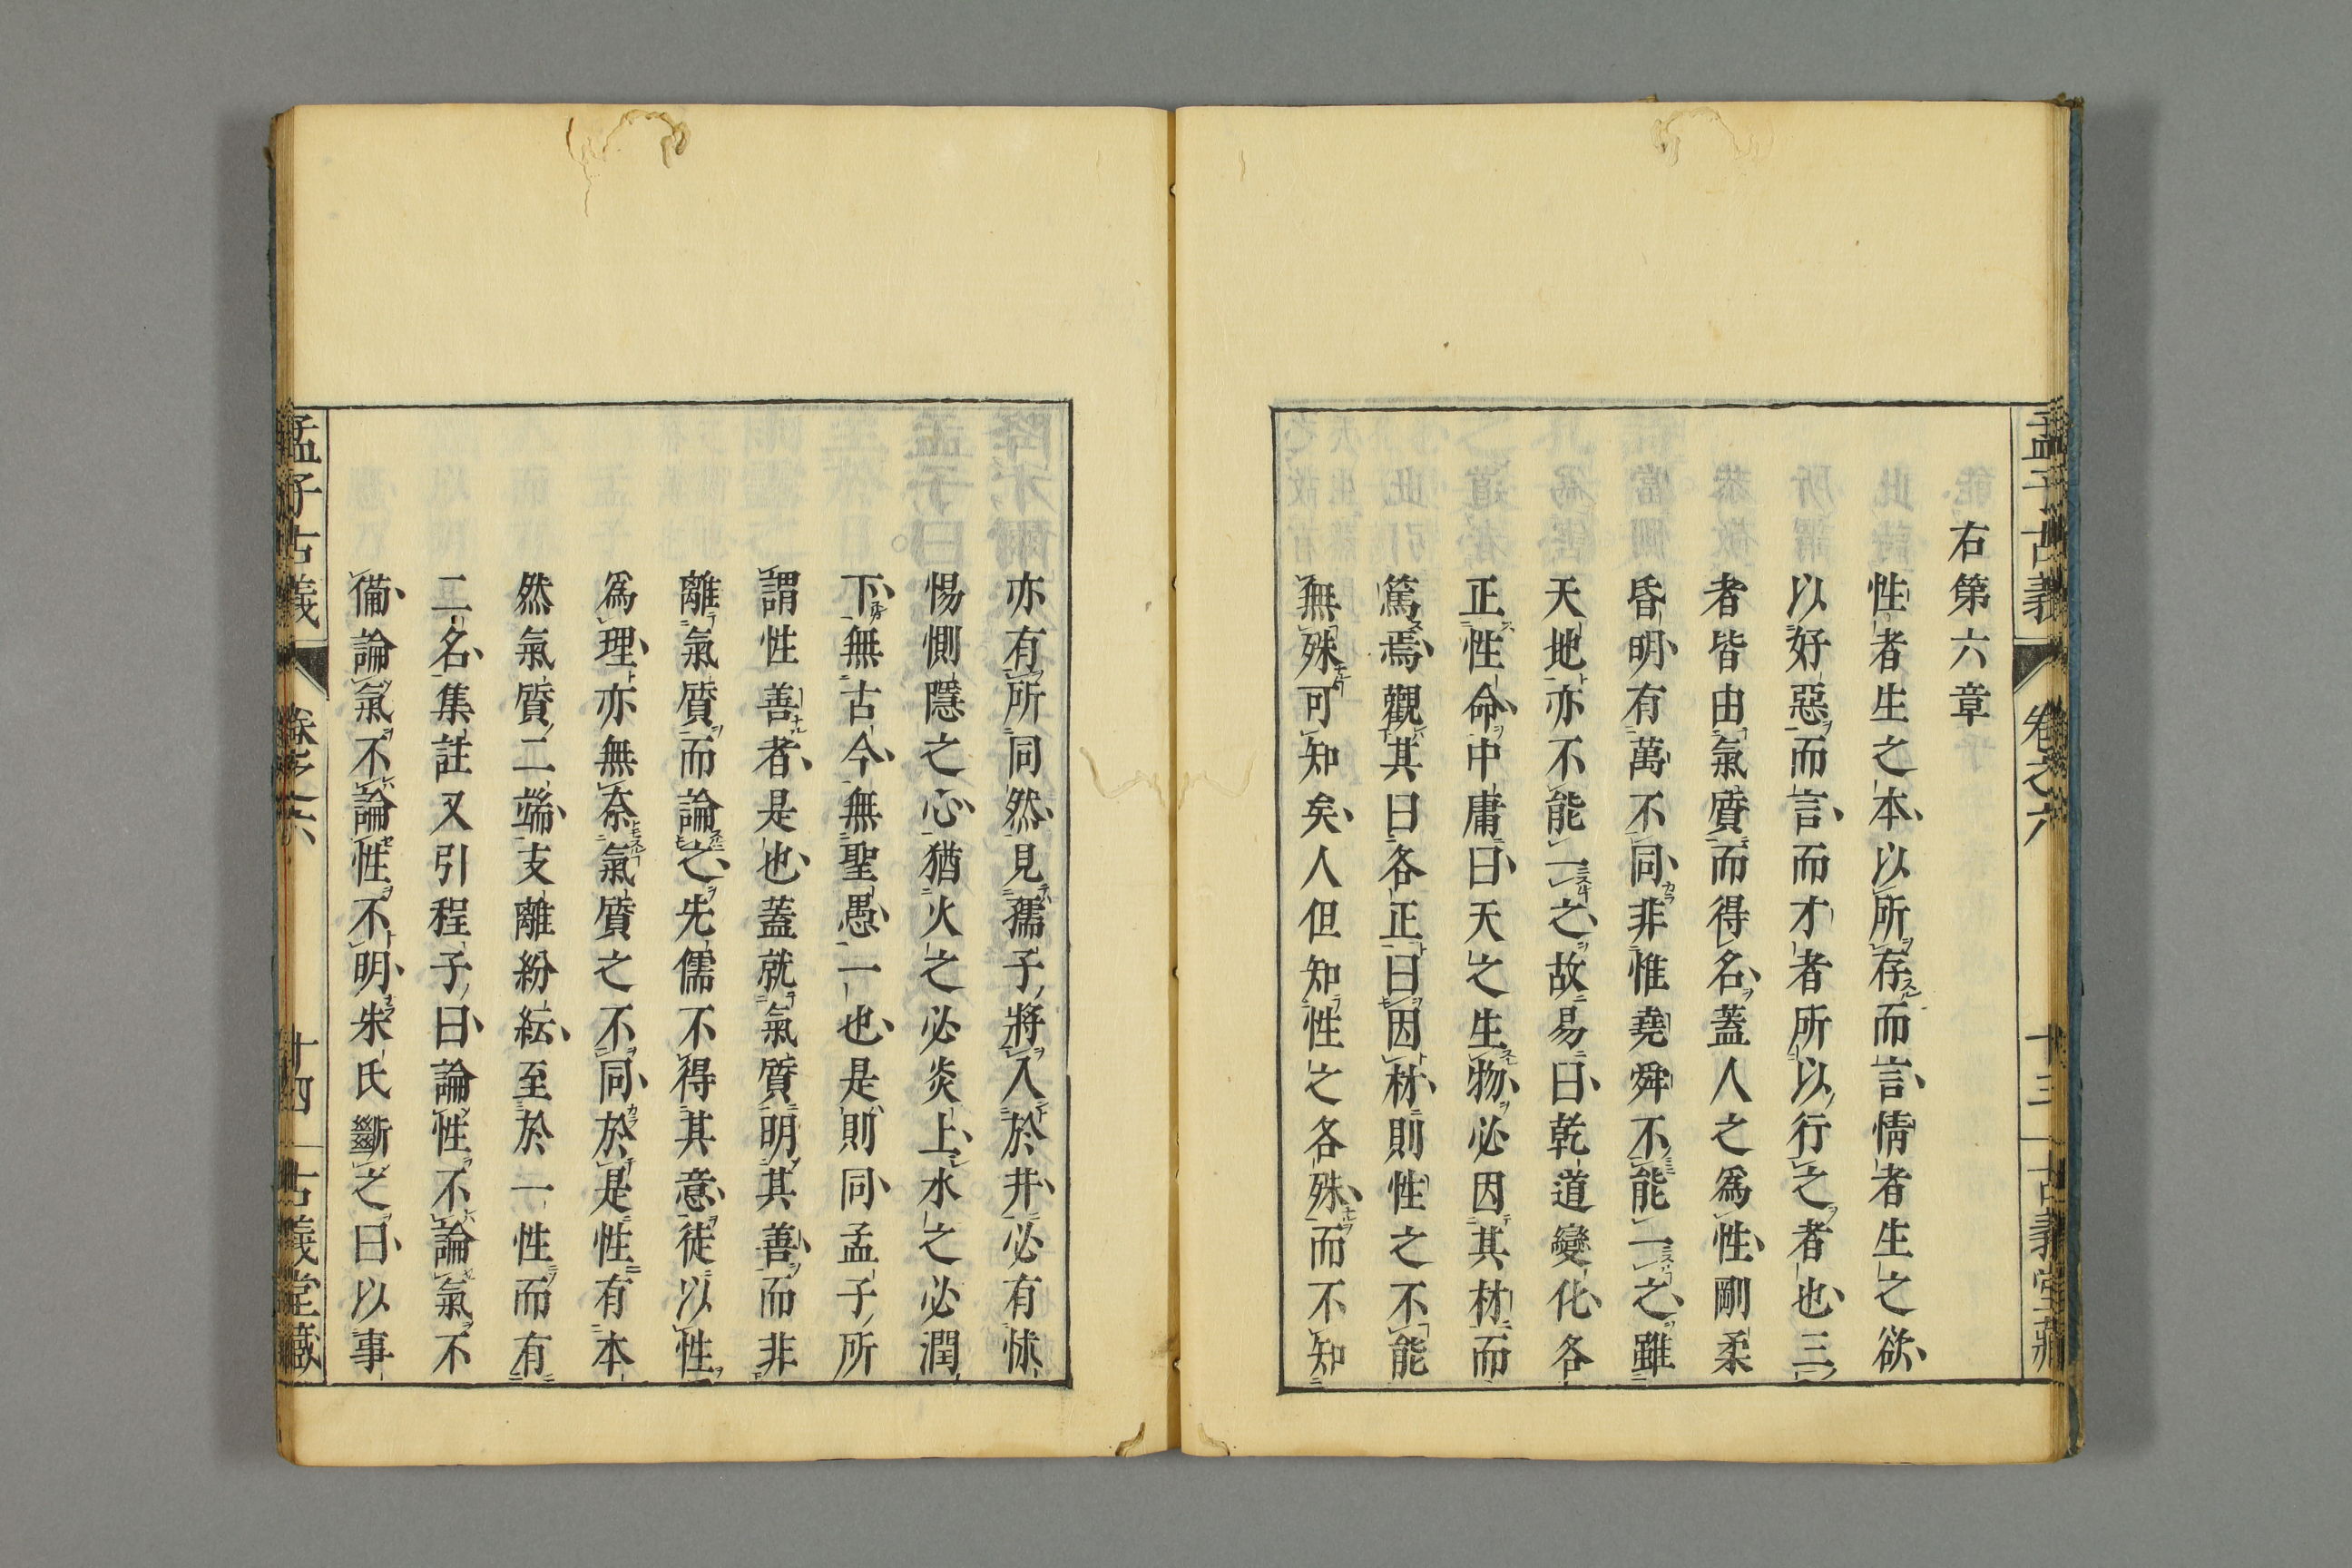 孟子古義 卷之六 十三 古義堂藏
右第六章
性者生之本以所存而言情者生之欲
以好惡而言而才者所以行之者也三
者皆由氣質而得名蓋人之爲性剛柔
昏明有萬不同非惟堯舜不能一之雖
天地亦不能一之故易曰乾道變化各
正性命中庸曰天之生物必因其材而
篤焉觀其曰各正曰因材則性之不能
無殊可知矣人但知性之各殊而不知
亦有所同然見孺子將入於井必有怵
惕惻隱之心猶火之必炎上水之必潤
下無古今無聖愚一也是則同孟子所
謂性善者是也蓋就氣質明其善而非
離氣質而論之先儒不得其意徒以性
爲理亦無奈氣質之不同於是性有本
然氣質二端支離紛紜至於一性而有
二名集註又引程子曰論性不論氣不
備論氣不論性不明朱氏斷之曰以事
孟子古義 卷之六 十四 古義堂藏